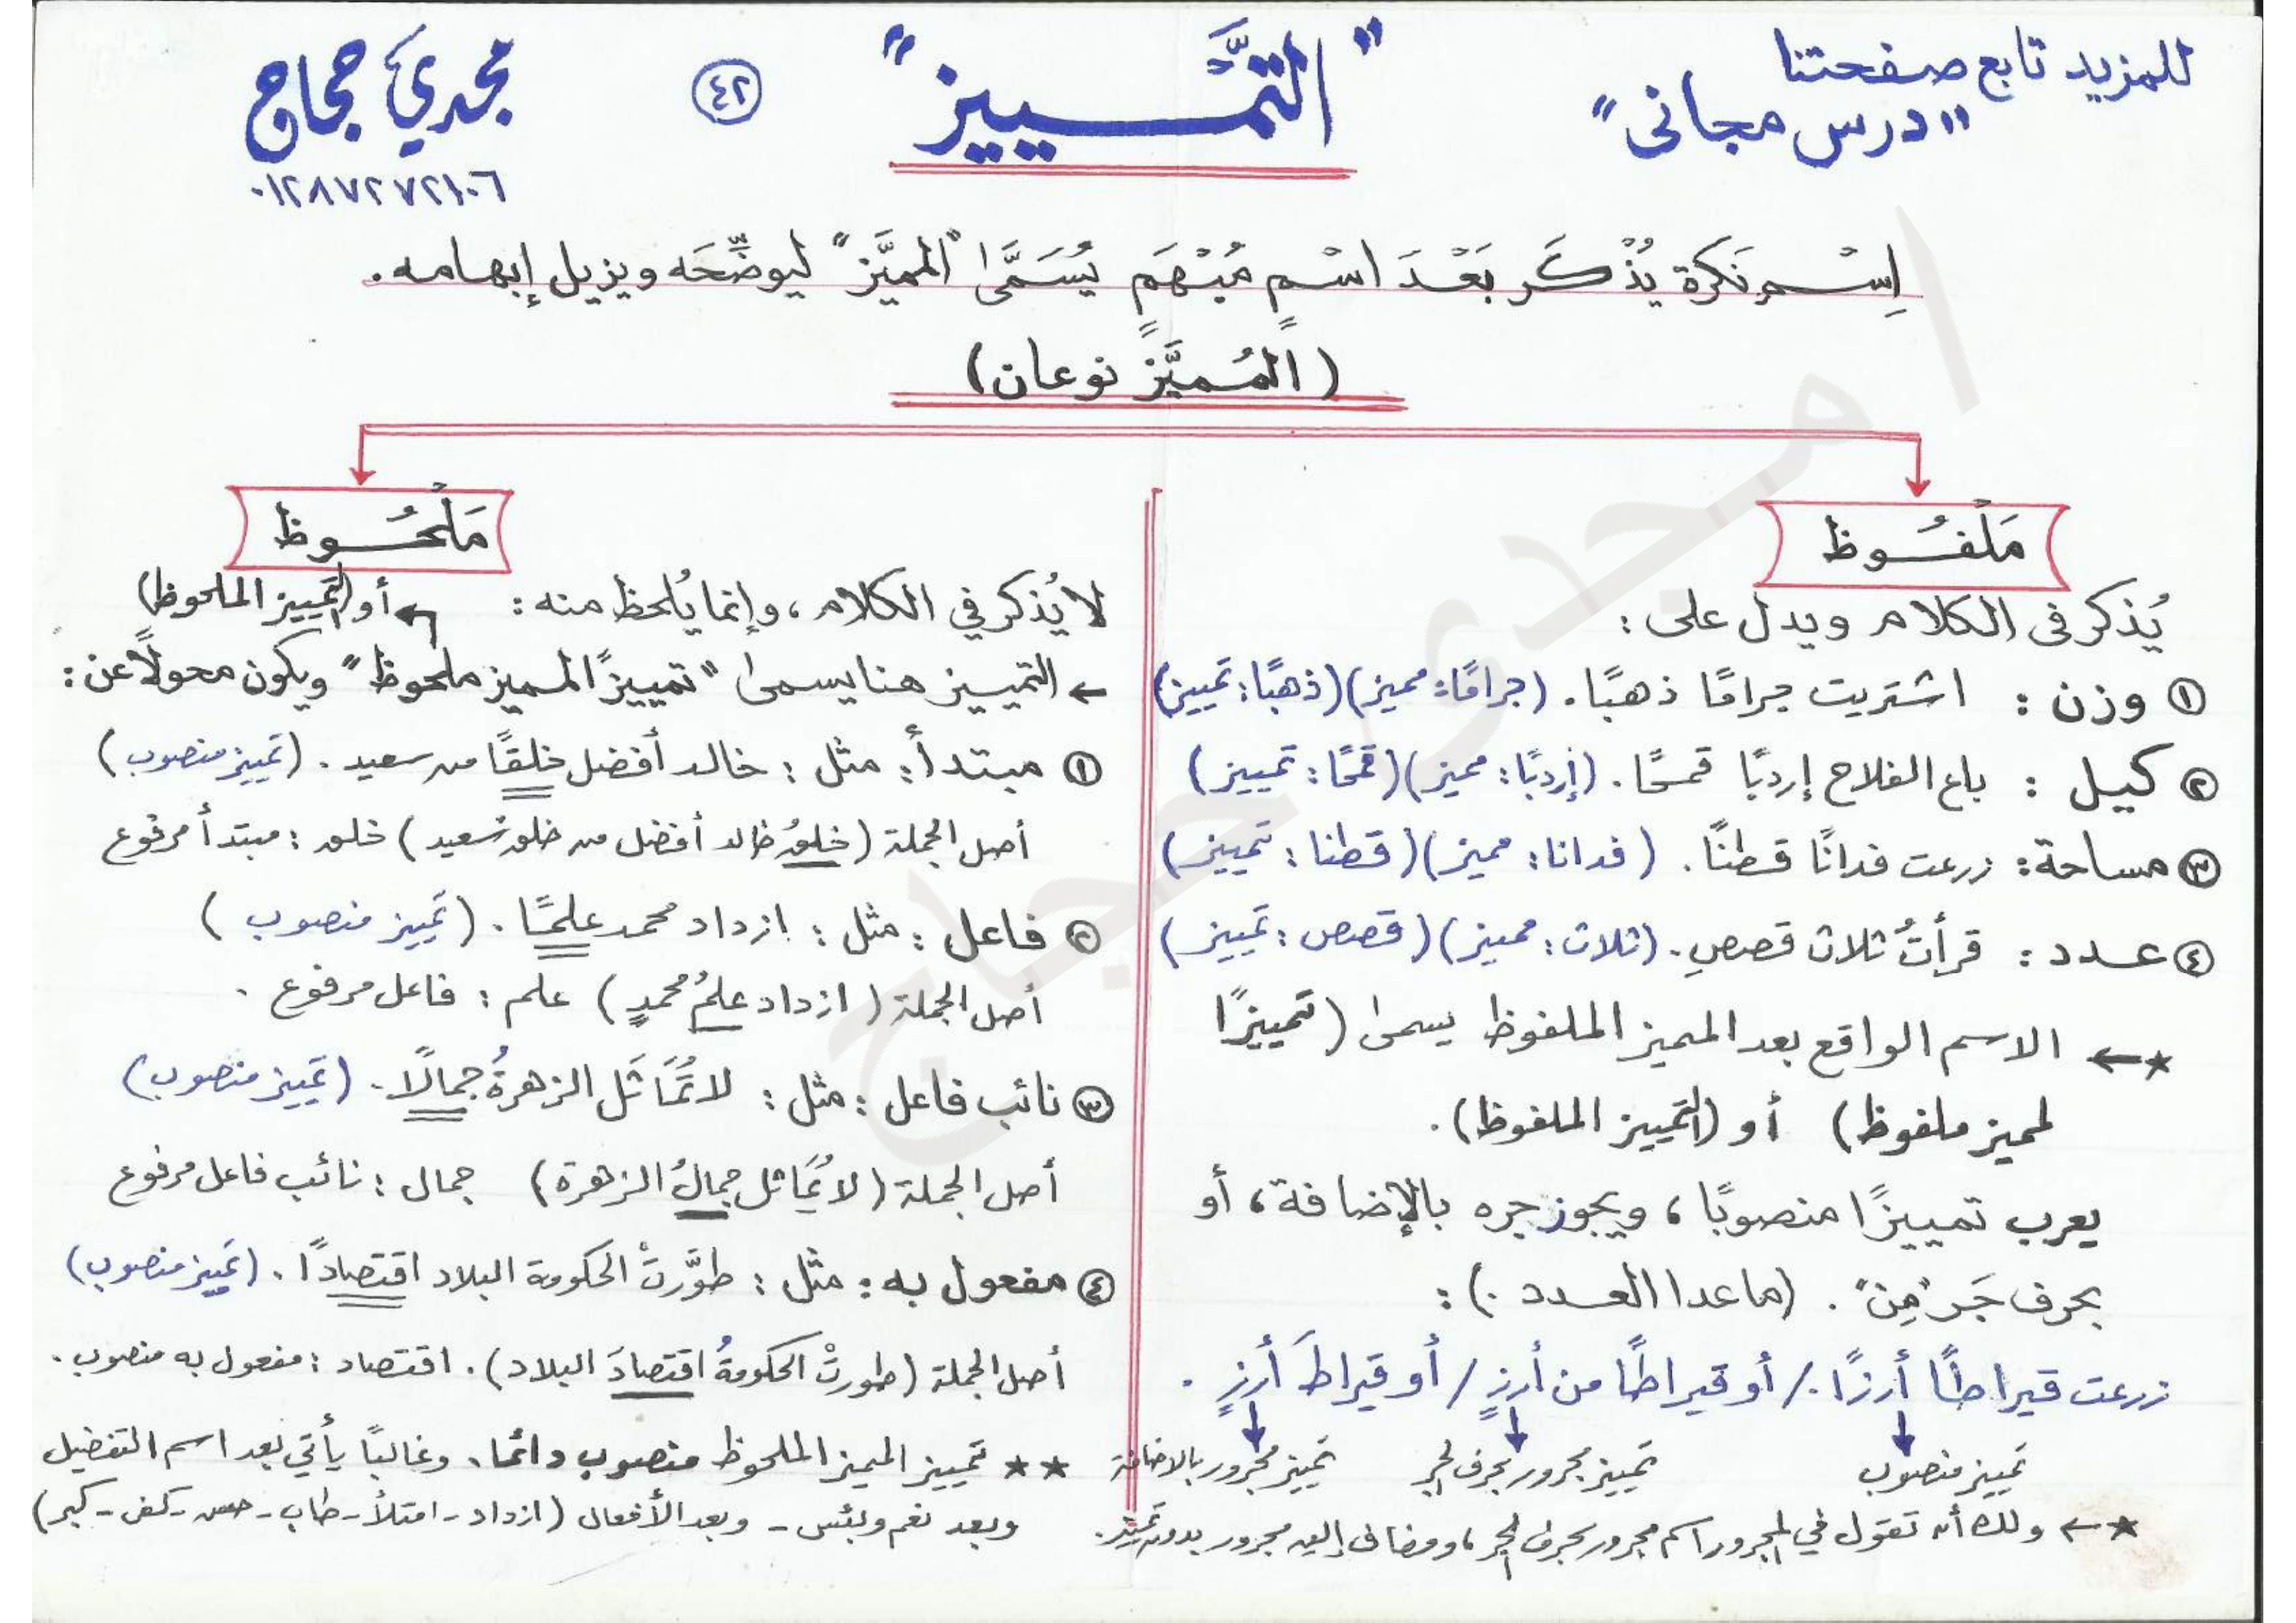 للمزيد تابع صفحتنا
"درس مجانى"
"التَّمـــييز"
٤٢
مجدي حجاج
٠١٢٨٧٢٧٢١٠٦
اِسْم نَكرة يُذْكَر بَعْدَ اسْمٍ مُبْهَمٍ يُسَمَّى "المميَّز" ليوضِّحَه ويزيل إبهامه.
(المُميَّز نوعان)
مَلْفُـوظ
يُذكر فى الكلام ويدل على :
① وزن : اشتريت جرامًا ذهبًا. (جرامًا: مميز) (ذهبًا: تمييز)
② كيل : باع الفلاح إردبًا قمحًا. (إردبًا: مميز) (قمحًا: تمييز)
③ مساحة : زرعت فدانًا قطنًا. (فدانا: مميز) (قطنا: تمييز)
④ عدد : قرأتُ ثلاث قصصٍ. (ثلاث: مميز) (قصص: تمييز)
★← الاسم الواقع بعد المميز الملفوظ يسمى (تمييزًا
لمميز ملفوظ) أو (التمييز الملفوظ).
يعرب تمييزًا منصوبًا، ويجوز جره بالإضافة، أو
بحرف جَر "مِن". (ماعدا العدد) :
زرعت قيراطًا أرزًا. / أو قيراطًا من أرزٍ / أو قيراطَ أرزٍ .
تمييز منصوب
تمييز مجرور بحرف الجر
تمييز مجرور بالاضافة
★← ولك أن تقول في المجرور اسم مجرور بحرف الجر، ومضاف إليه مجرور بدون تمييز.
مَلْحُـوظ
لا يُذكر في الكلام، وإنما يُلحظ منه :
أو (التمييز الملحوظ)
← التمييز هنا يسمى "تمييزًا لمميز ملحوظ" ويكون محولًا عن :
① مبتدأ : مثل : خالد أفضل خلقًا من سعيد. (تمييز منصوب)
أصل الجملة (خلقُ خالد أفضل من خلق سعيد) خلق : مبتدأ مرفوع
② فاعل : مثل : ازداد محمد علمًا. (تمييز منصوب)
أصل الجملة (ازداد علمُ محمدٍ) علم : فاعل مرفوع .
③ نائب فاعل : مثل : لا تُمَاثَل الزهرةُ جمالًا. (تمييز منصوب)
أصل الجملة (لا يُمَاثل جمالُ الزهرة) جمال : نائب فاعل مرفوع
④ مفعول به : مثل : طوَّرتْ الحكومة البلاد اقتصادًا. (تمييز منصوب)
أصل الجملة (طورتْ الحكومةُ اقتصادَ البلاد). اقتصاد : مفعول به منصوب.
★★ تمييز المميز الملحوظ منصوب دائما. وغالبًا يأتي بعد اسم التفضيل
وبعد نعم وبئس - وبعد الأفعال (ازداد - امتلأ - طاب - حسن - كفى - كبر)
ا مجدى حجاج